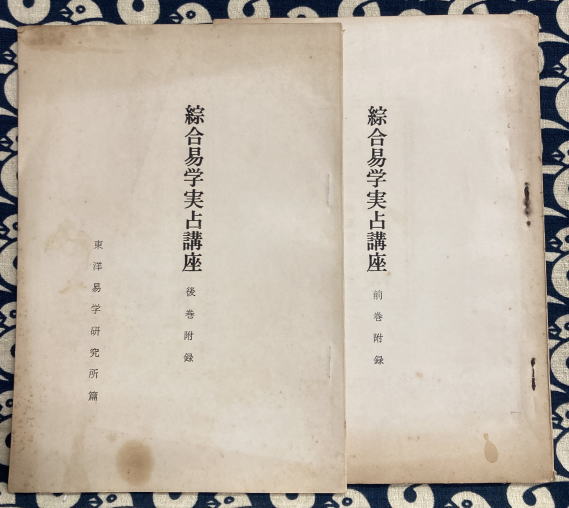 綜合易学実占講座 前巻附録
綜合易学実占講座 後巻附録
東洋易学研究所篇